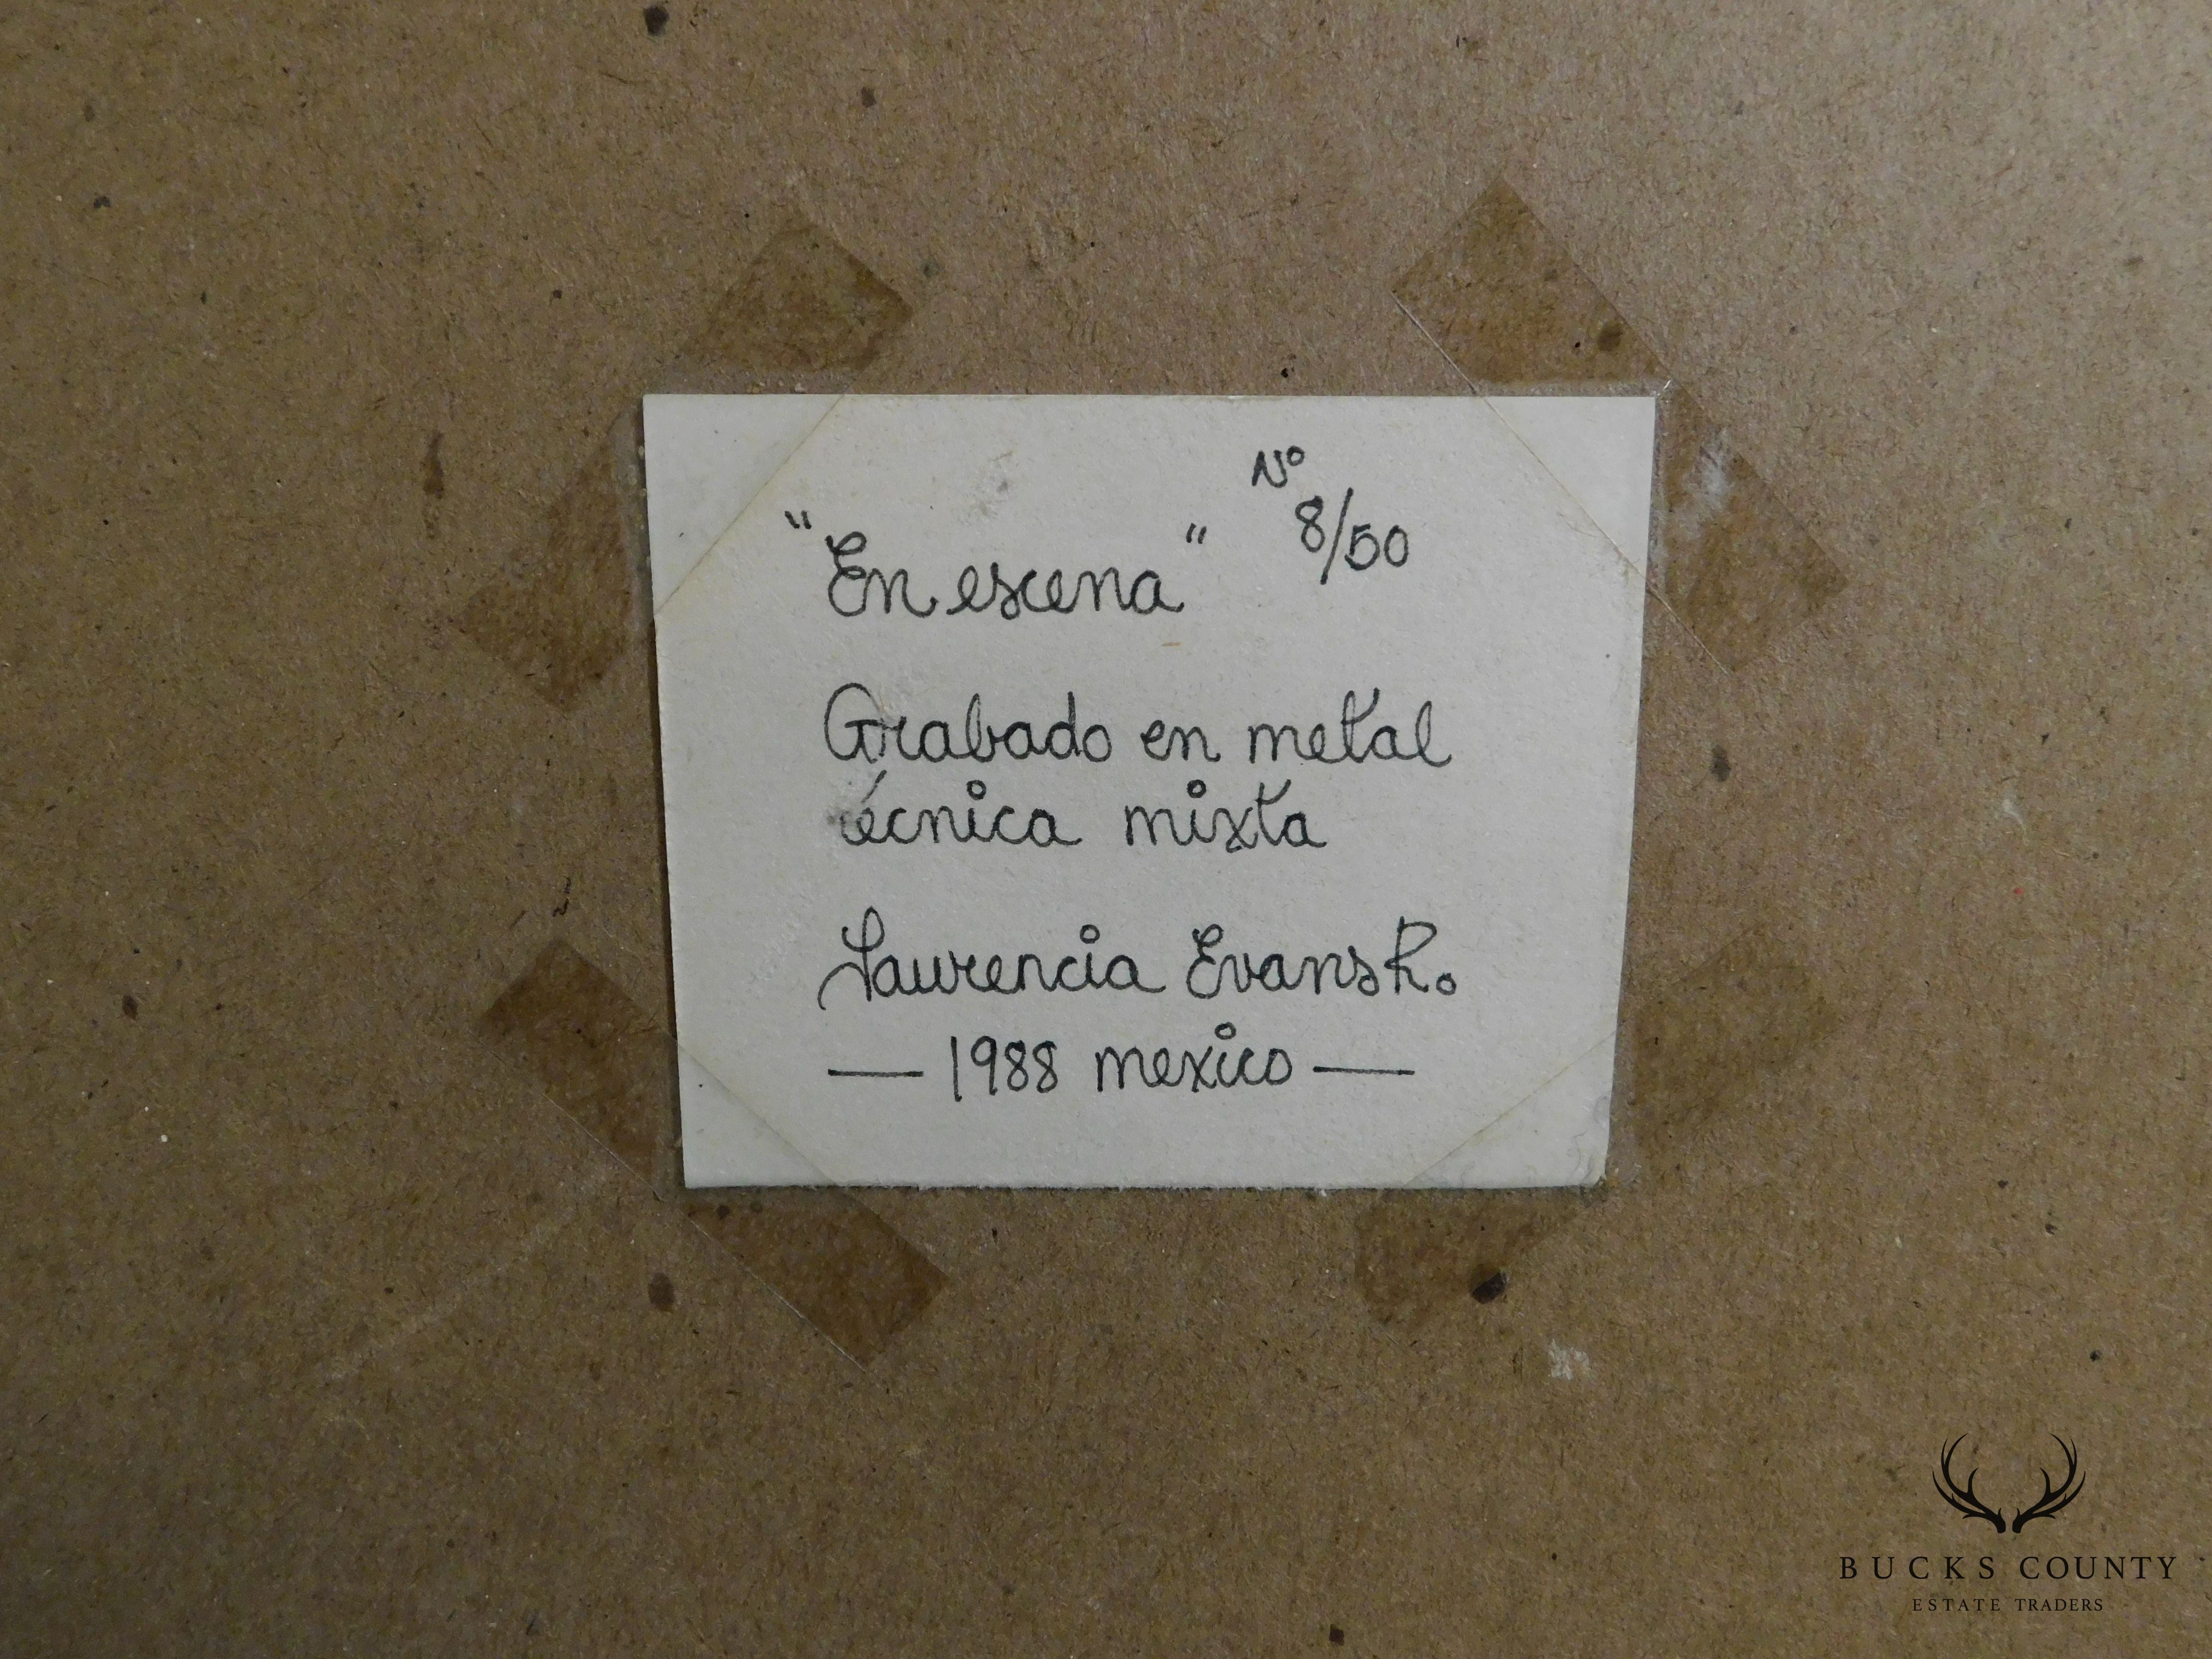 Nº
8/50
"En escena"
Grabado en metal
técnica mixta
Laurencia Evans R.
— 1988 mexico —
BUCKS COUNTY
ESTATE TRADERS